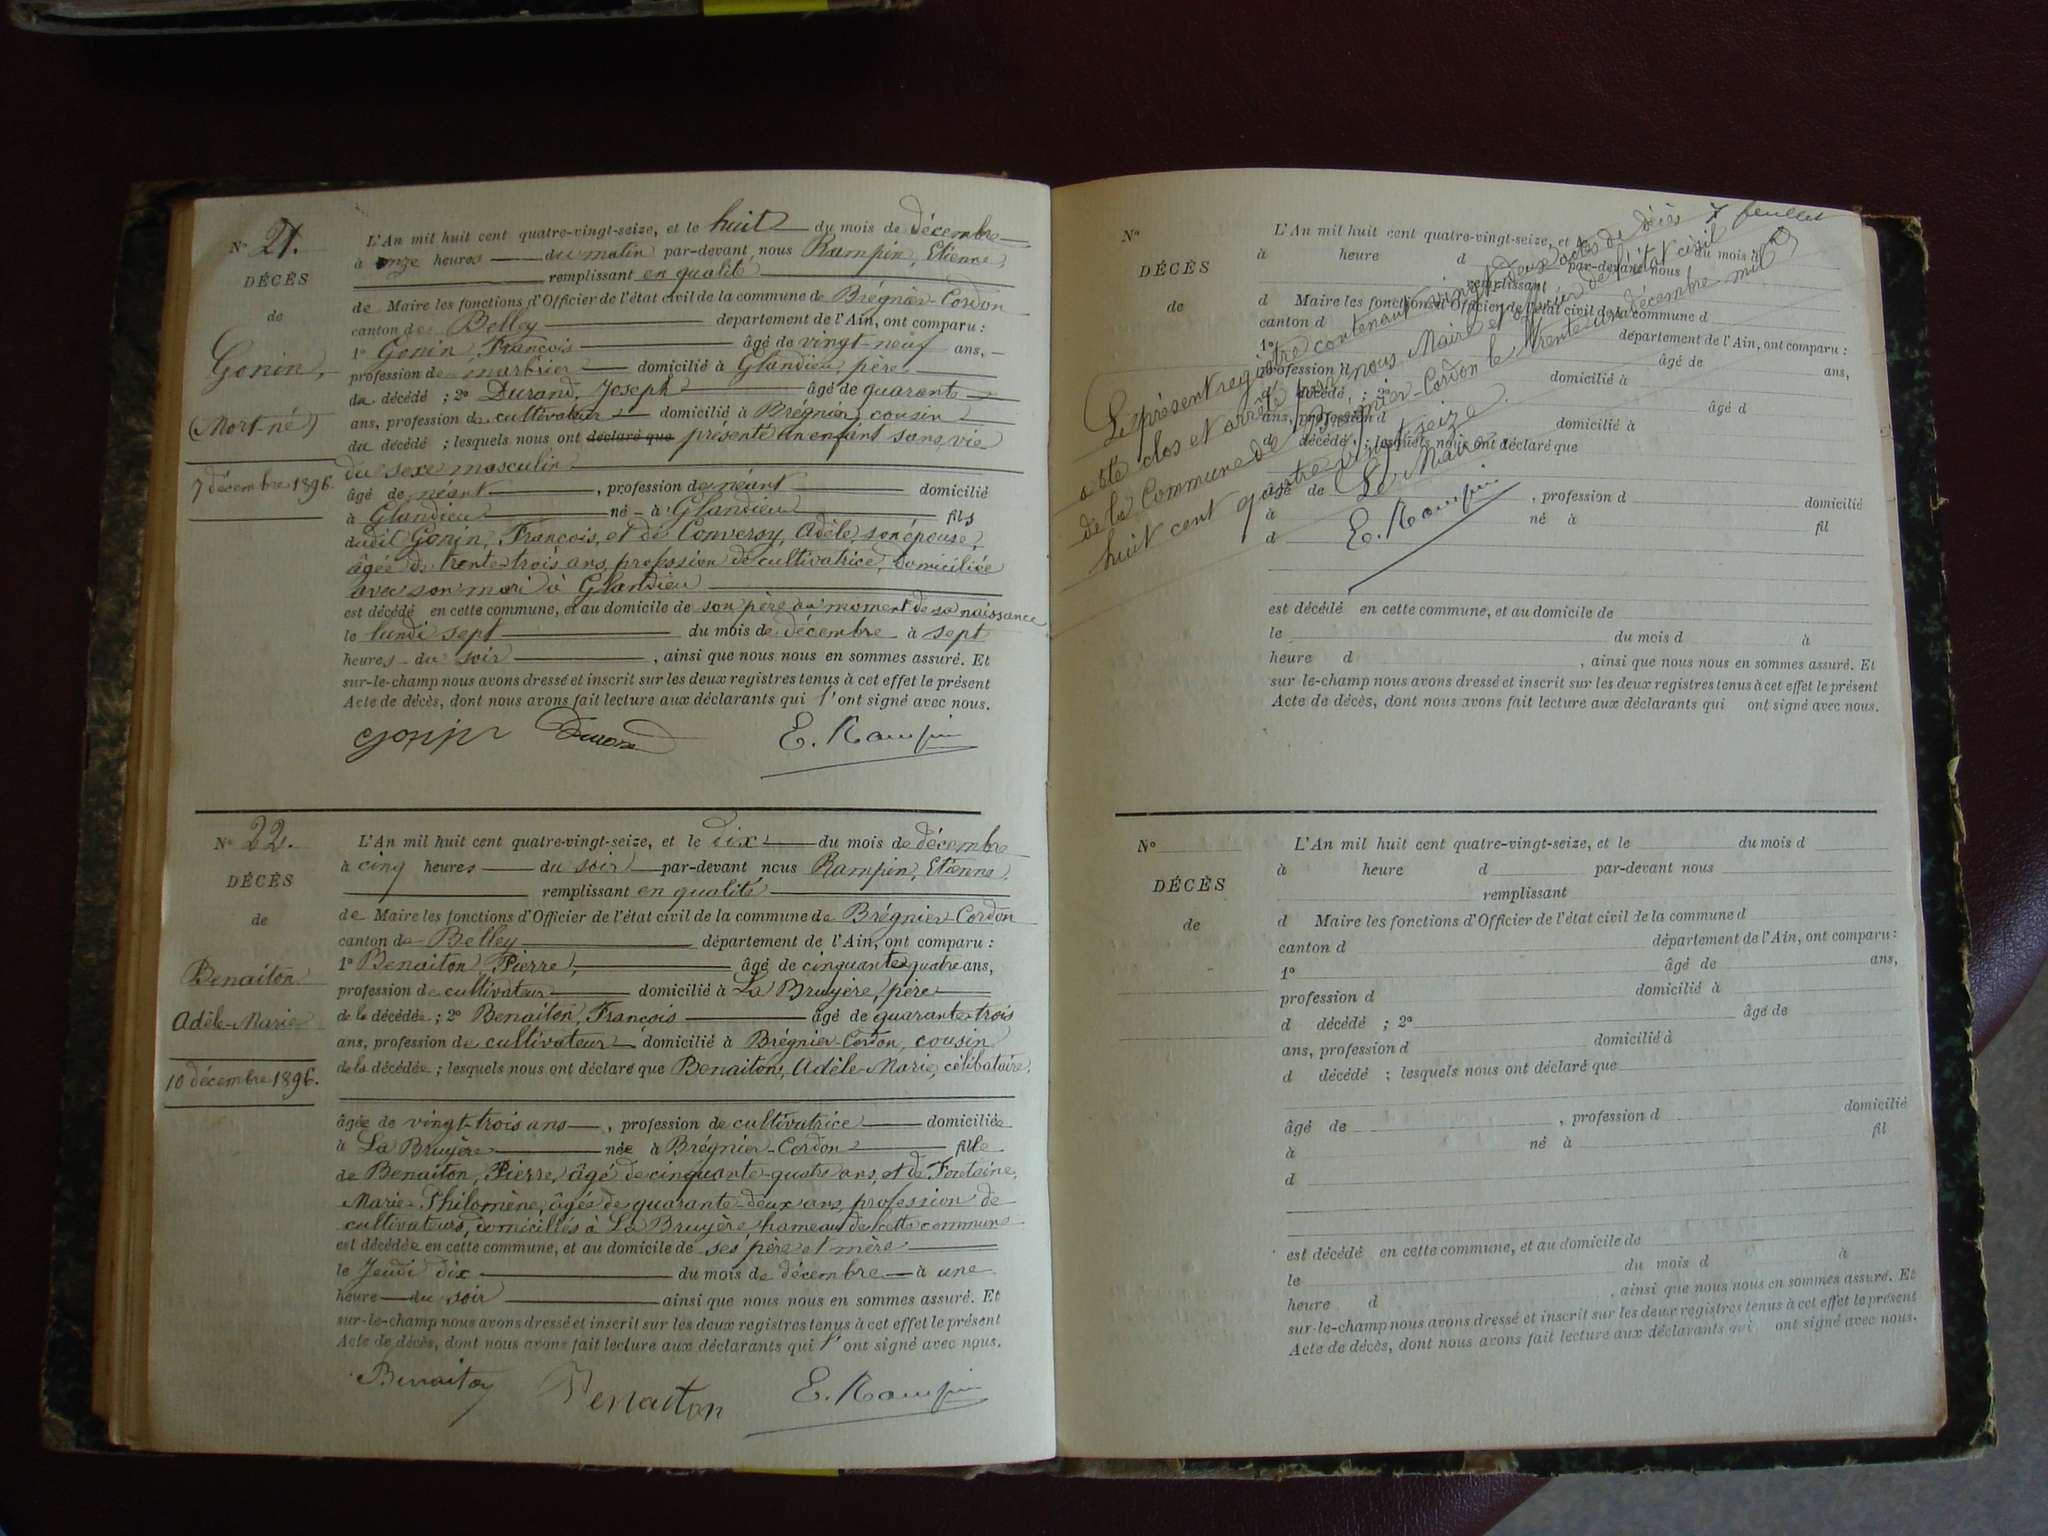 Nº 21.
DÉCÈS
de
Gonin,
(Mort-né)
7 décembre 1896.
L'An mil huit cent quatre-vingt-seize, et le huit du mois de décembre
à onze heures du matin par-devant nous Rampin, Etienne,
remplissant en qualité
de Maire les fonctions d'Officier de l'état civil de la commune de Brégnier-Cordon
canton de Belley département de l'Ain, ont comparu :
1º Gonin, François âgé de vingt-neuf ans,
profession de marbrier domicilié à Glandieu, père
du décédé ; 2º Durand, Joseph âgé de quarante
ans, profession de cultivateur domicilié à Brégnier, cousin
du décédé ; lesquels nous ont déclaré que présenté un enfant sans vie
du sexe masculin
âgé de néant , profession de néant domicilié
à Glandieu né à Glandieu fils
dudit Gonin, François, et de Conversy, Adèle, son épouse,
âgée de trente-trois ans, profession de cultivatrice, domiciliée
avec son mari à Glandieu
est décédé en cette commune, et au domicile de son père au moment de sa naissance
le lundi sept du mois de décembre à sept
heures du soir , ainsi que nous nous en sommes assuré. Et
sur-le-champ nous avons dressé et inscrit sur les deux registres tenus à cet effet le présent
Acte de décès, dont nous avons fait lecture aux déclarants qui l'ont signé avec nous.
Gonin Durand E. Rampin
Nº 22.
DÉCÈS
de
Benaiton
Adèle-Marie
10 décembre 1896.
L'An mil huit cent quatre-vingt-seize, et le dix du mois de décembre
à cinq heures du soir par-devant nous Rampin, Etienne,
remplissant en qualité
de Maire les fonctions d'Officier de l'état civil de la commune de Brégnier-Cordon
canton de Belley département de l'Ain, ont comparu :
1º Benaiton, Pierre, âgé de cinquante quatre ans,
profession de cultivateur domicilié à La Bruyère, père
de la décédée ; 2º Benaiton, François âgé de quarante-trois
ans, profession de cultivateur domicilié à Brégnier-Cordon, cousin
de la décédée ; lesquels nous ont déclaré que Benaiton, Adèle-Marie, célibataire,
âgée de vingt-trois ans , profession de cultivatrice domiciliée
à La Bruyère née à Brégnier-Cordon fille
de Benaiton, Pierre, âgé de cinquante-quatre ans, et de Fontaine,
Marie-Philomène, âgée de quarante-deux ans, profession de
cultivateurs, domiciliés à La Bruyère, hameau de cette commune
est décédée en cette commune, et au domicile de ses père et mère
le Jeudi dix du mois de décembre à une
heure du soir ainsi que nous nous en sommes assuré. Et
sur-le-champ nous avons dressé et inscrit sur les deux registres tenus à cet effet le présent
Acte de décès, dont nous avons fait lecture aux déclarants qui l'ont signé avec nous.
Benaiton Benaiton E. Rampin
Nº
DÉCÈS
de
L'An mil huit cent quatre-vingt-seize, et le du mois d
à heure d par-devant nous
remplissant
d Maire les fonctions d'Officier de l'état civil de la commune d
canton d département de l'Ain, ont comparu :
1º âgé de ans,
profession d domicilié à
d décédé, ; 2º âgé d
ans, profession d domicilié à
d décédé, ; lesquels nous ont déclaré que
âgé de , profession d domicilié
à né à fil
d
Le présent registre contenant vingt-deux actes de décès 7 feuillets
a été clos et arrêté par nous Maire et officier de l'état civil
de la Commune de Brégnier-Cordon le trente un décembre mil
huit cent quatre vingt seize.
Le Maire
E. Rampin
est décédé en cette commune, et au domicile de
le du mois d à
heure d , ainsi que nous nous en sommes assuré. Et
sur-le-champ nous avons dressé et inscrit sur les deux registres tenus à cet effet le présent
Acte de décès, dont nous avons fait lecture aux déclarants qui ont signé avec nous.
Nº
DÉCÈS
de
L'An mil huit cent quatre-vingt-seize, et le du mois d
à heure d par-devant nous
remplissant
d Maire les fonctions d'Officier de l'état civil de la commune d
canton d département de l'Ain, ont comparu :
1º âgé de ans,
profession d domicilié à
d décédé ; 2º âgé de
ans, profession d domicilié à
d décédé ; lesquels nous ont déclaré que
âgé de , profession d domicilié
à né à fil
d
est décédé en cette commune, et au domicile de
le du mois d à
heure d , ainsi que nous nous en sommes assuré. Et
sur-le-champ nous avons dressé et inscrit sur les deux registres tenus à cet effet le présent
Acte de décès, dont nous avons fait lecture aux déclarants qui ont signé avec nous.